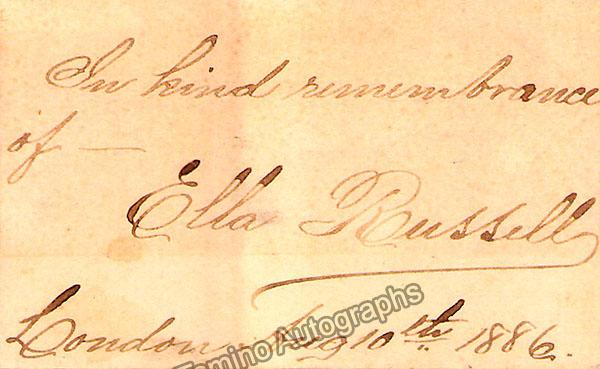 In kind remembrance
of —
Ella Russell
London. Aug 10th 1886.
Tamino Autographs